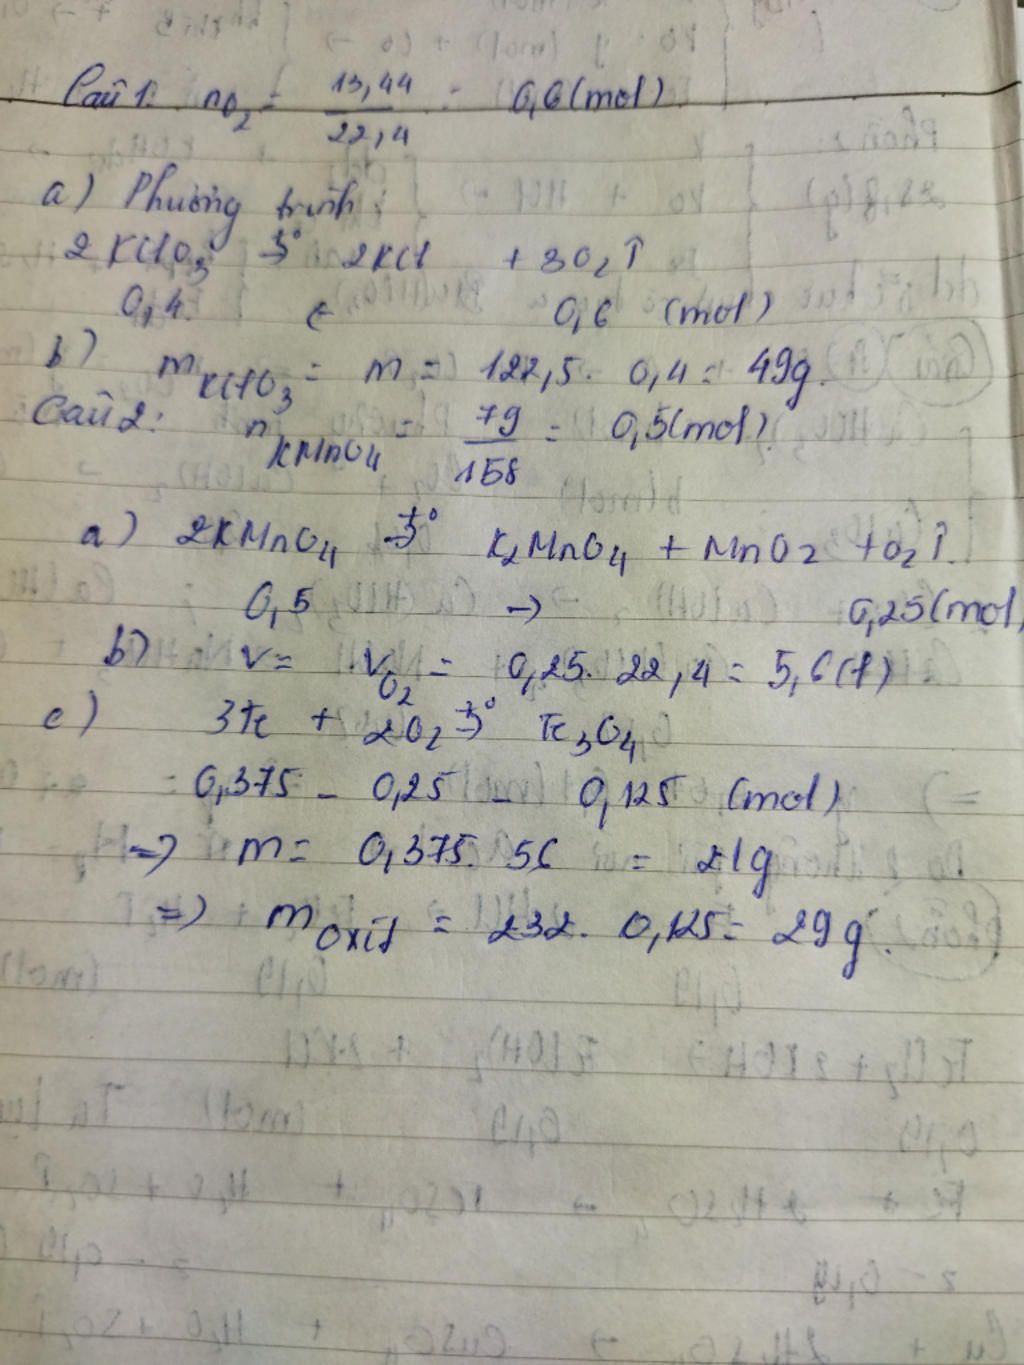 Câu 1: nO₂ = 13,44/22,4 = 0,6(mol)
a) Phương trình:
2KClO₃ →t° 2KCl + 3O₂↑
0,4 ← 0,6 (mol)
b) mKClO₃ = m = 122,5. 0,4 = 49g.
Câu 2: nKMnO₄ = 79/158 = 0,5(mol)
a) 2KMnO₄ →t° K₂MnO₄ + MnO₂ + O₂↑.
0,5 → 0,25(mol)
b) V = VO₂ = 0,25. 22,4 = 5,6(l)
c) 3Fe + 2O₂ →t° Fe₃O₄
0,375 - 0,25 - 0,125 (mol)
=> m = 0,375. 56 = 21g
=> moxit = 232. 0,125 = 29g.